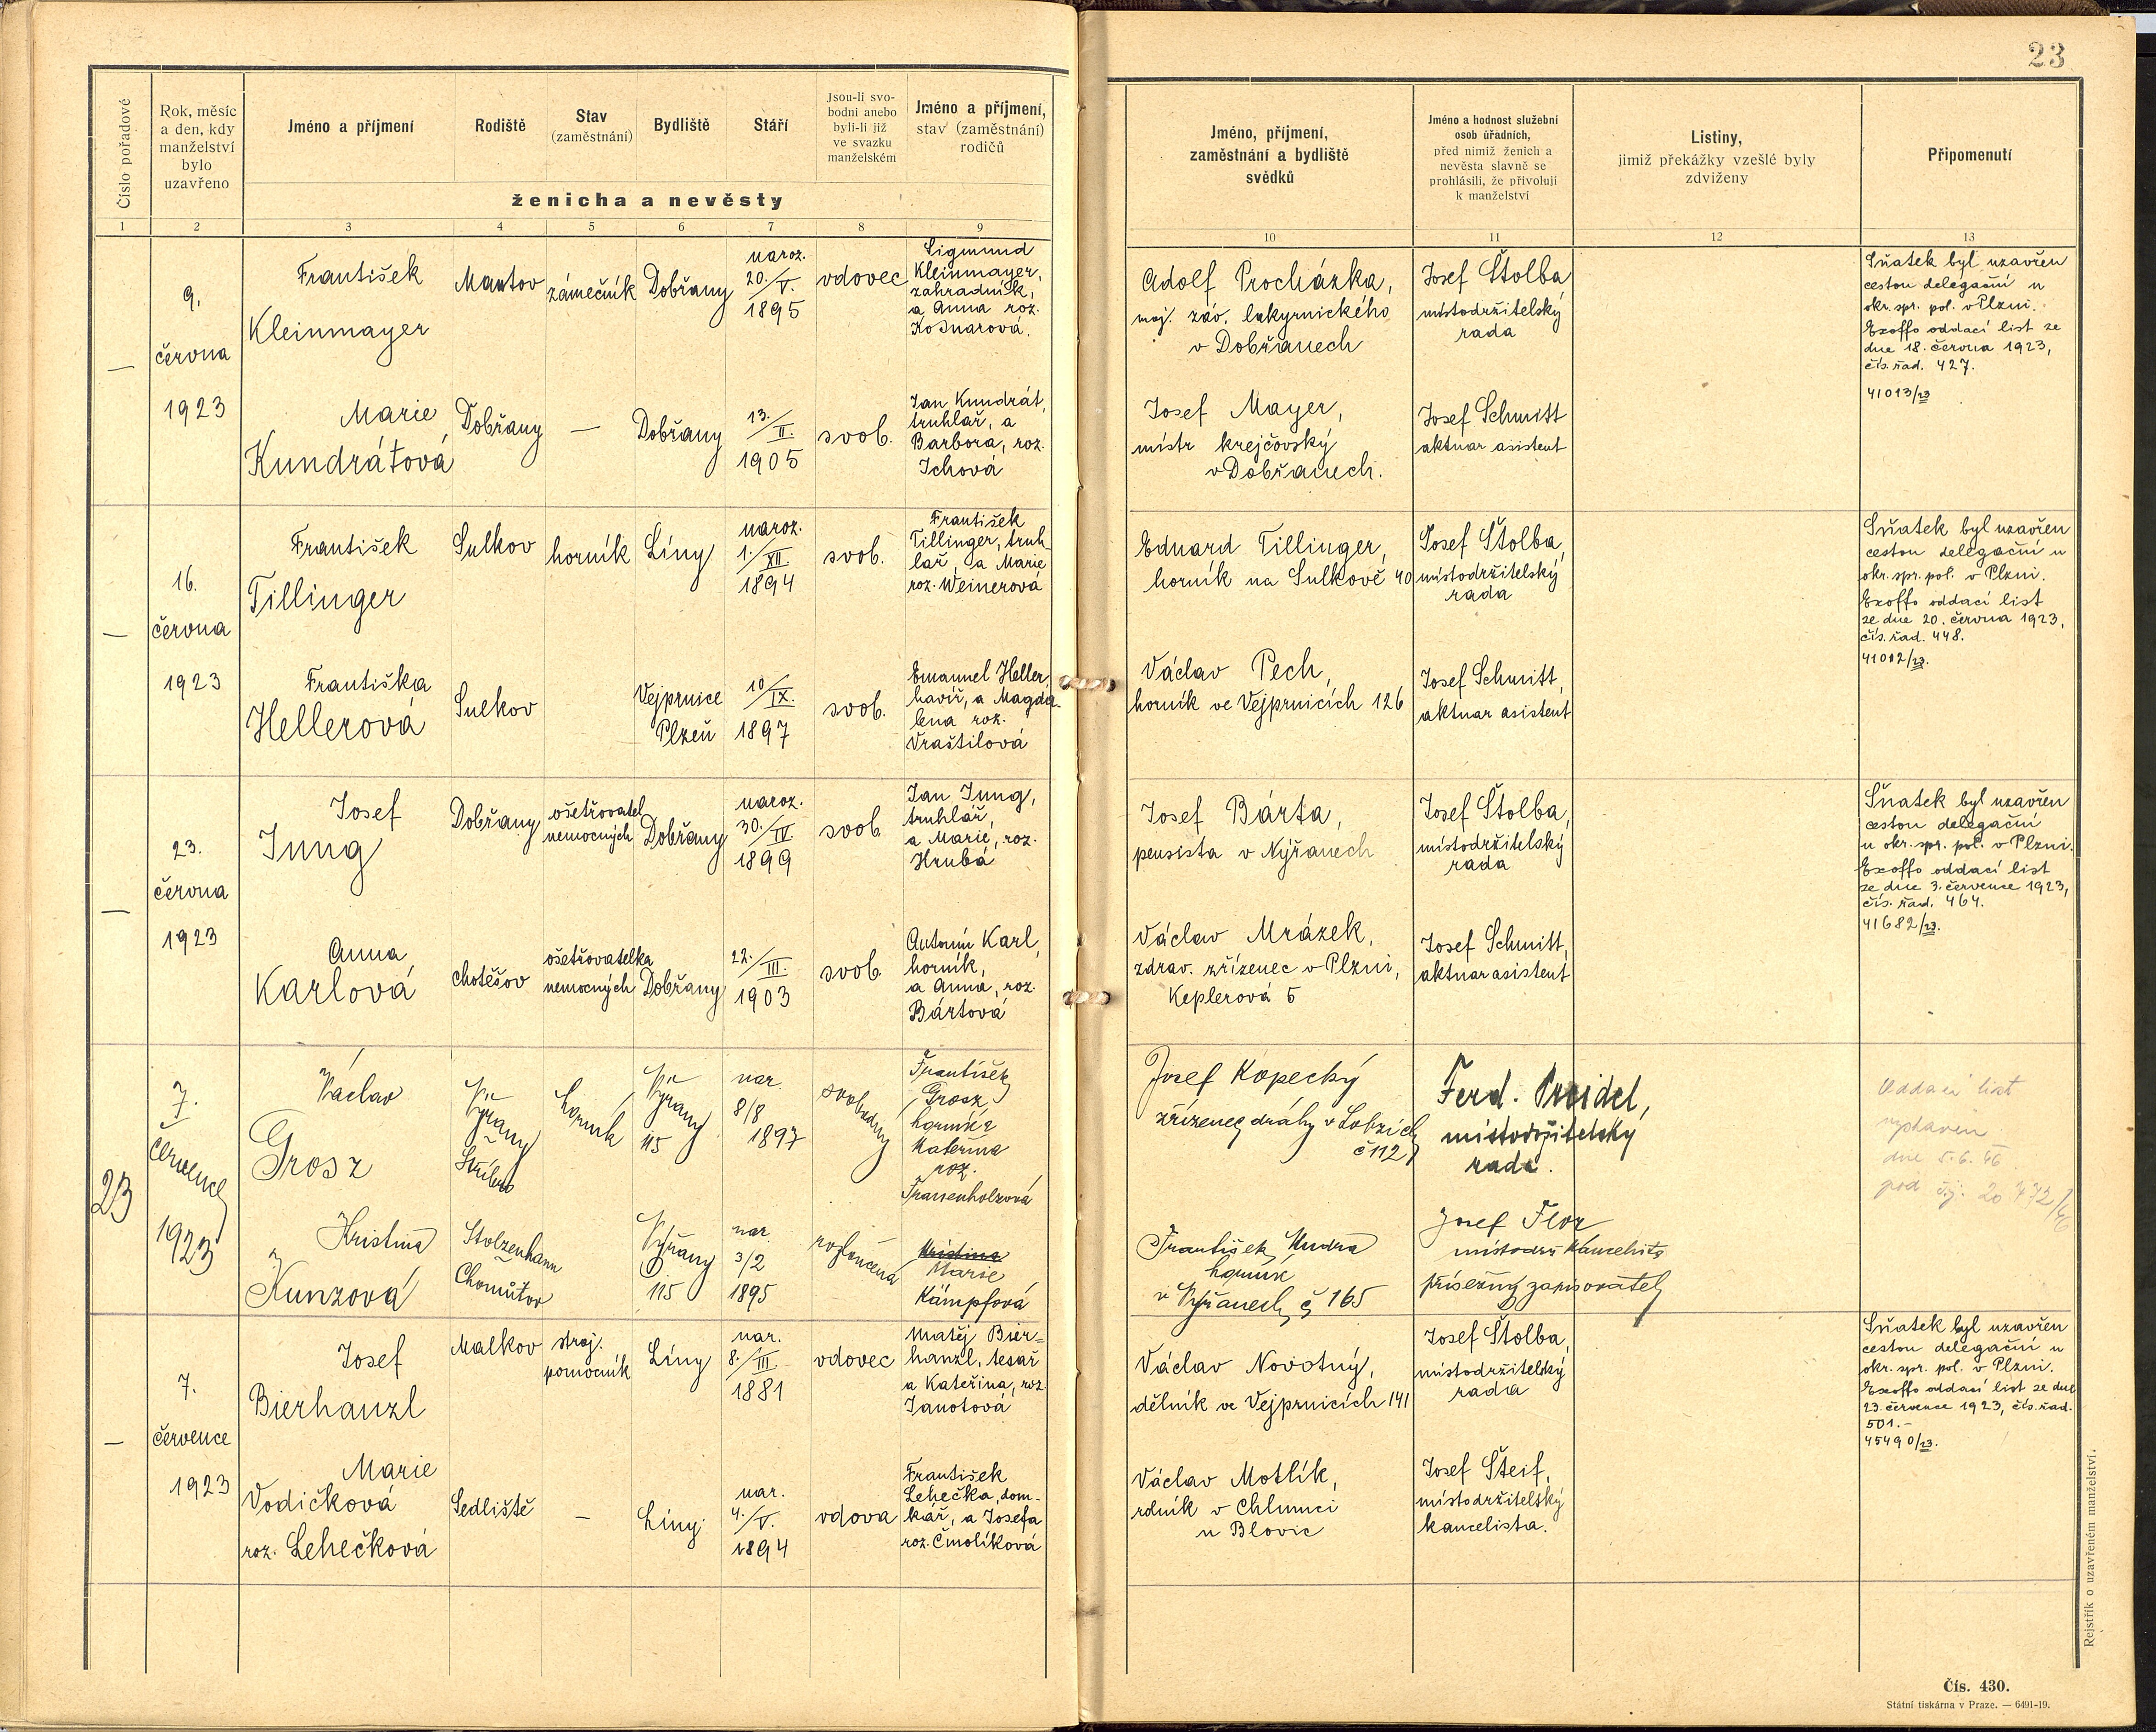 23
Číslo pořadové
Rok, měsíc
a den, kdy
manželství
bylo
uzavřeno
Jméno a příjmení
Rodiště
Stav
(zaměstnání)
Bydliště
Stáří
Jsou-li svo-
bodni anebo
byli-li již
ve svazku
manželském
Jméno a příjmení,
stav (zaměstnání)
rodičů
ženicha a nevěsty
Jméno, příjmení,
zaměstnání a bydliště
svědků
Jméno a hodnost služební
osob úřadních,
před nimiž ženich a
nevěsta slavně se
prohlásili, že přivolují
k manželství
Listiny,
jimiž překážky vzešlé byly
zdviženy
Připomenutí
1 2 3 4 5 6 7 8 9 10 11 12 13
—
9.
června
1923
František
Kleinmayer
Mantov
zámečník
Dobřany
naroz.
20./V.
1895
vdovec
Sigmund
Kleinmayer,
zahradník,
a Anna roz.
Marie
Kundrátová
Dobřany
—
Dobřany
13./II.
1905
svob.
Jan Kundrát,
truhlář, a
Barbora, roz.
Ichová
Adolf Procházka,
maj. záv. lakyrnického
v Dobřanech
Josef Mayer,
mistr krejčovský
v Dobřanech.
Josef Štolba
místodržitelský
rada
Josef Schmitt
aktuar asistent
Sňatek byl uzavřen
cestou delegační u
okr. spr. pol. v Plzni.
Exoffo oddací list ze
dne 18. června 1923,
čís. řad. 427.
41013/23
—
16.
června
1923
František
Tillinger
Sulkov
horník
Líny
naroz.
1./XII.
1894
svob.
František
Tillinger, truh-
lář, a Marie
roz. Weinerová
Františka
Hellerová
Sulkov
Vejprnice
Plzeň
10/IX.
1897
svob.
Emanuel Heller,
havíř, a Magda-
lena roz.
Vraštilová
Eduard Tillinger,
horník na Sulkově 40
Václav Pech,
horník ve Vejprnicích 126
Josef Štolba,
místodržitelský
rada
Josef Schmitt,
aktuar asistent
Sňatek byl uzavřen
cestou delegační u
okr. spr. pol. v Plzni.
Exoffo oddací list
ze dne 20. června 1923,
čís. řad. 448.
41012/23.
—
23.
června
1923
Josef
Jung
Dobřany
ošetřovatel
nemocných
Dobřany
naroz.
30./IV.
1899
svob
Jan Jung,
truhlář,
a Marie, roz.
Hrubá
Anna
Karlová
Chotěšov
ošetřovatelka
nemocných
Dobřany
22./III.
1903
svob
Antonín Karl,
horník,
a Anna, roz.
Bártová
Josef Bárta,
pensista v Nýřanech
Václav Mrázek,
zdrav. zřízenec v Plzni,
Keplerová 5
Josef Štolba,
místodržitelský
rada
Josef Schmitt,
aktuar asistent
Sňatek byl uzavřen
cestou delegační
u okr. spr. pol. v Plzni.
Exoffo oddací list
ze dne 3. července 1923,
čís. řad. 464.
41682/23.
23
7.
července
1923
Václav
Grosz
Nýřany
Stříbro
horník
Nýřany
115
nar.
8/8
1897
svobodný
František
Grosz
horník a
Kateřina
roz.
Kristina
Kunzová
Stolzenhann
Chomútov
Nýřany
115
nar.
3/2
1895
rozloučená
Kristina
Marie
Kämpfová
Josef Kopecký
zřízenec dráhy v Lobzích
č 112
František Kudra
horník
v Nýřanech č 165
Ferd. Preidel,
místodržitelský
rada.
Josef Flor
místodrž kancelista
přísežný zapisovatel
Oddací list
vystaven
dne 5.6.46
pod čj. 20772/46
—
7.
července
1923
Josef
Bierhanzl
Malkov
stroj.
pomocník
Líny
nar.
8./III.
1881
vdovec
Matěj Bier-
hanzl, tesař
a Kateřina, roz.
Janotová
Marie
Vodičková
roz. Lehečková
Sedliště
—
Líny
nar.
4./V.
1894
vdova
František
Lehečka, dom-
kář, a Josefa
roz. Čmolíková
Václav Novotný,
dělník ve Vejprnicích 141
Václav Motlík,
rolník v Chlumci
u Blovic
Josef Štolba,
místodržitelský
rada
Josef Šteif,
místodržitelský
kancelista.
Sňatek byl uzavřen
cestou delegační u
okr. spr. pol. v Plzni.
Exoffo oddací list ze dne
23. července 1923, čís. řad.
501.-
45490/23.
Rejstřík o uzavřeném manželství.
Čís. 430.
Státní tiskárna v Praze. — 6491-19.